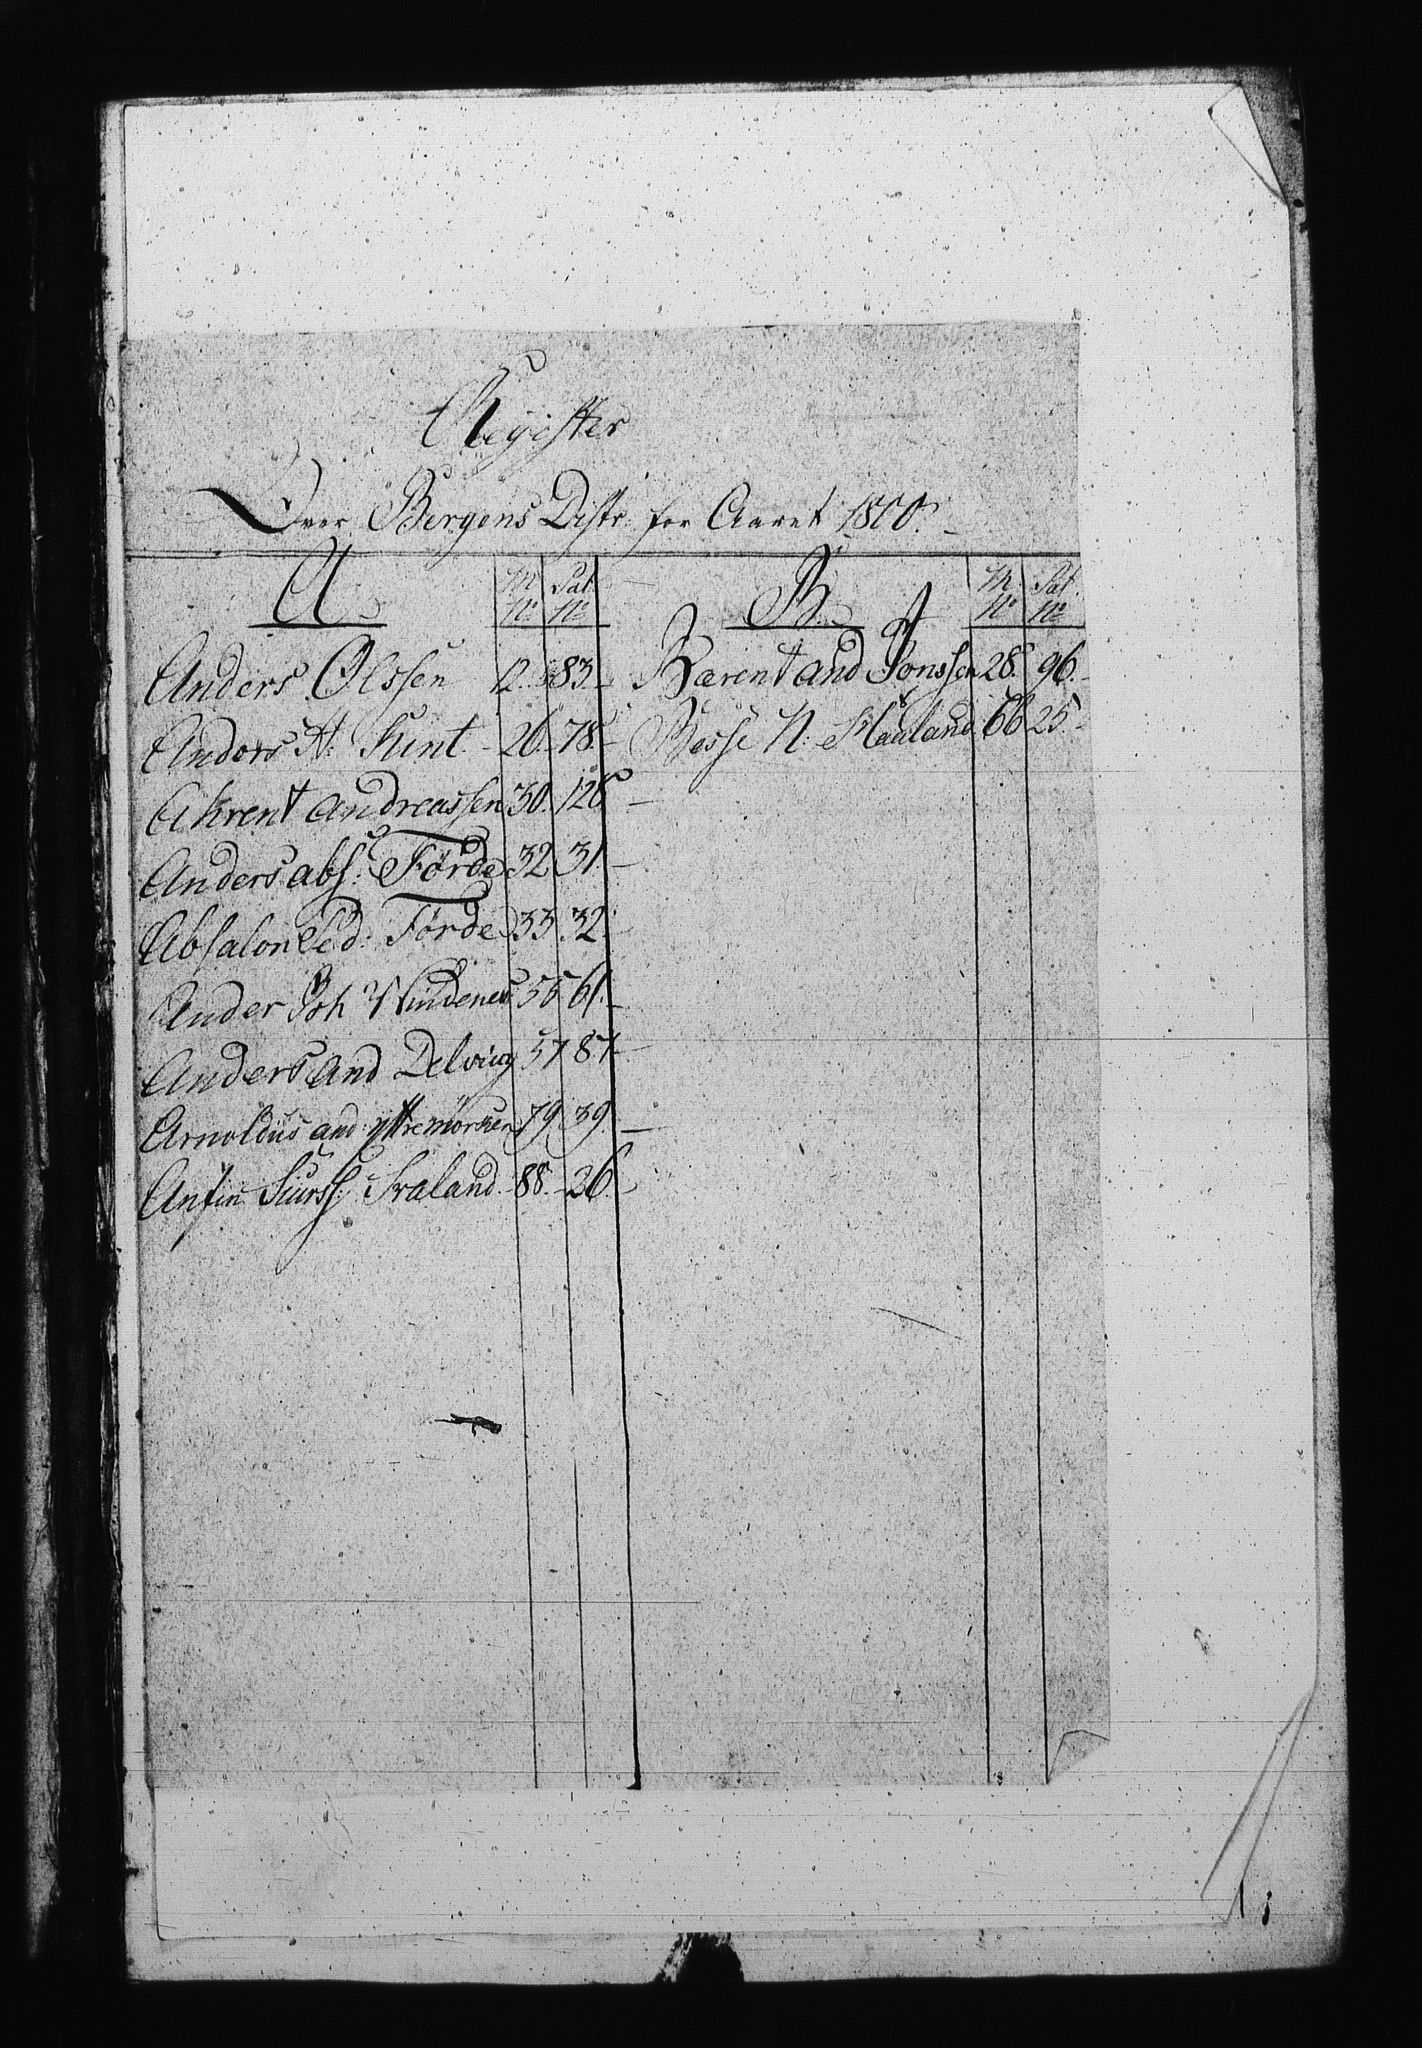 Register
Over Bergens Distr: for Aaret 1800.
A M No Pat No
Anders Olssen 12. 83.
Anders A: Kint. 26. 78.
Ahrent Andreassen 30. 128
Anders abs: Førde 32 31.
Absalon Ped: Førde 33 32.
Ander Joh Vindenes 56 61.
Anders And Delvig 57 87.
Arnoldus and: yttremorken 79 39
Anfin Siurss: Fraland. 88. 26.
B M No Pat No
Bærent and Jonssen 28. 96.
Besse N: Hauland 66 25.
1